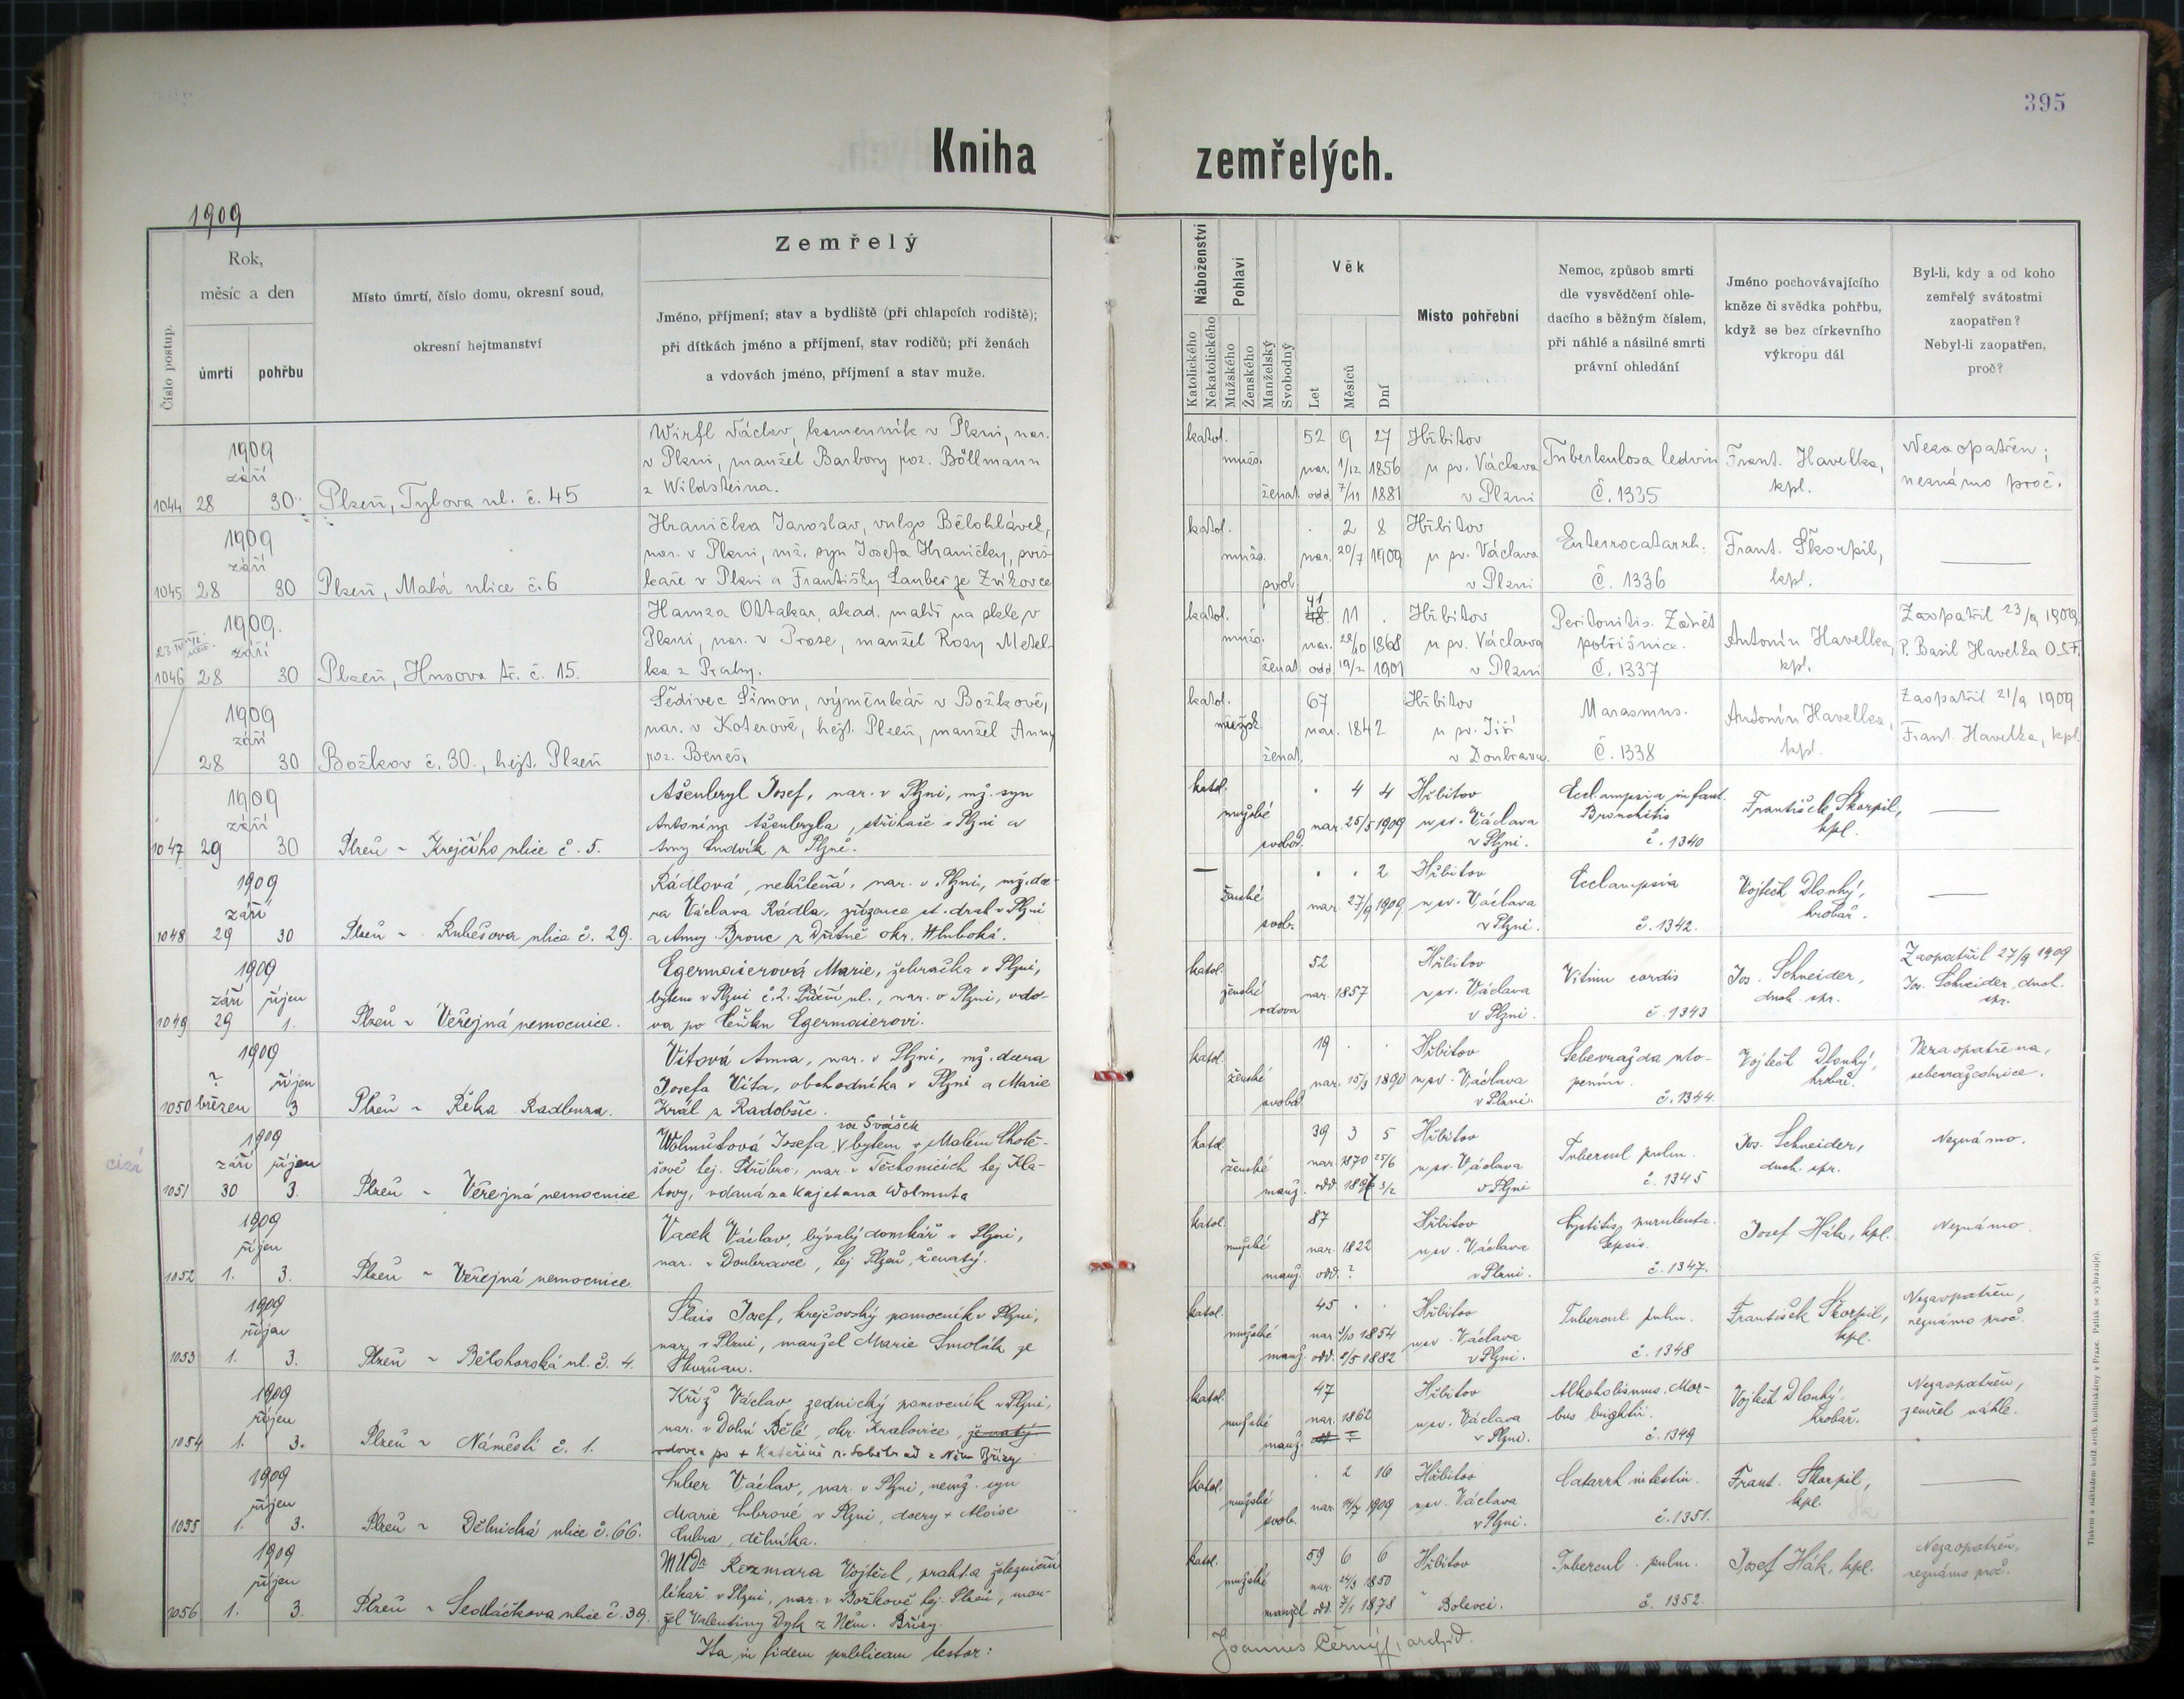 395
Kniha zemřelých.
1909
Číslo postup.
Rok,
měsíc a den
úmrtí
pohřbu
Místo úmrtí, číslo domu, okresní soud,
okresní hejtmanství
Zemřelý
Jméno, příjmení; stav a bydliště (při chlapcích rodiště);
při dítkách jméno a příjmení, stav rodičů; při ženách
a vdovách jméno, příjmení a stav muže.
Náboženství
Katolického
Nekatolického
Pohlaví
Mužského
Ženského
Manželský
Svobodný
Věk
Let
Měsíců
Dní
Místo pohřební
Nemoc, způsob smrti
dle vysvědčení ohle-
dacího s běžným číslem,
při náhlé a násilné smrti
právní ohledání
Jméno pochovávajícího
kněze či svědka pohřbu,
když se bez církevního
výkropu dál
Byl-li, kdy a od koho
zemřelý svátostmi
zaopatřen?
Nebyl-li zaopatřen,
proč?
1909
září
1044 28 30 Plzeň, Tylova ul. č. 45
Wirfl Václav, kamenník v Plzni, nar.
v Plzni, manžel Barbory roz. Böllmann
z Wildsteina.
katol. 52 9 27 Hřbitov
mužs. nar. 1/12 1856 u sv. Václava
ženat. odd. 7/11 1881 v Plzni
Tuberkulosa ledvin
Č. 1335
Frant. Havelka,
kpl.
Nezaopatřen;
neznámo proč.
1909
září
1045 28 30 Plzeň, Malá ulice č. 6
Hranička Jaroslav, vulgo Bělohlávek,
nar. v Plzni, mž. syn Josefa Hraničky,
v Plzni a Františky Lauber ze Zvíkovce
katol. . 2 8 Hřbitov
mužs. nar. 20/7 1909 u sv. Václava
svob. v Plzni
Enterocatarrh.
Č. 1336
Frant. Škorpil,
kpl.
1909.
září
1046 28 30 Plzeň, Husova tř. č. 15.
Hamza Ottakar, akad. malíř na skle, v
Plzni, nar. v Praze, manžel Rosy Metel-
ka z Prahy.
katol. 41 48 11 . Hřbitov
mužs. nar. 28/10 1868 u sv. Václava
ženat. odd. 19/2 1901 v Plzni
Peritonitis. Zánět
pobřišnice.
Č. 1337
Antonín Havelka,
kpl.
Zaopatřil 23/9 1909
P. Basil Havelka O.S.F.
1909
září
28 30 Božkov č. 30., hejt. Plzeň
Šedivec Šimon, výměnkář v Božkově,
nar. v Koterově, hejt. Plzeň, manžel Anny
roz. Beneš,
katol. 67 Hřbitov
mužsk. nar. 1842 u sv. Jiří
ženat. v Doubravce.
Marasmus.
Č. 1338
Antonín Havelka,
kpl.
Zaopatřil 21/9 1909
Frant. Havelka, kpl.
1909
září
1047 29 30 Plzeň ~ Krejčího ulice č. 5.
Ašenbryl Josef, nar. v Plzni, mž. syn
Antonína Ašenbryla, stříhače v Plzni a
Anny Ludvík z Plzně.
katol. . 4 4 Hřbitov
mužské nar. 25/5 1909 u sv. Václava
svobod. v Plzni.
Ecclampsia infant.
Bronchitis
č. 1340
František Škorpil,
kpl.
1909
září
1048 29 30 Plzeň ~ Rubešova ulice č. 29.
Rádlová, nekřtěná, nar. v Plzni, mž. dce-
ra Václava Rádla, zřízence st. drah v Plzni
a Anny Brouc z okr. Hluboká.
— . . 2 Hřbitov
ženské nar. 27/9 1909 u sv. Václava
svob. v Plzni.
Ecclampsia
č. 1342.
Vojtěch Dlouhý,
hrobař.
1909
září říjen
1049 29 1. Plzeň ~ Veřejná nemocnice.
Egermaierová Marie, žebračka v Plzni,
bytem v Plzni č. 2. ul., nar. v Plzni, vdo-
va po Egermaierovi.
katol. 52 Hřbitov
ženské nar. 1857 u sv. Václava
vdova v Plzni.
Vitium cordis
č. 1343
Jos. Schneider,
duch. spr.
Zaopatřil 27/9 1909
Jos. Schneider, duch.
spr.
1909
? říjen
1050 březen 3 Plzeň ~ Řeka Radbuza.
Vítová Anna, nar. v Plzni, mž. dcera
Josefa Víta, obchodníka v Plzni a Marie
Král z Radobčic.
katol. 19 . . Hřbitov
ženské nar. 15/3 1890 u sv. Václava
svobod. v Plzni.
Sebevražda uto-
pením.
č. 1344
Vojtěch Dlouhý,
hrobař.
Nezaopatřena,
sebevražednice.
cizí
1909
září říjen
1051 30 3. Plzeň ~ Veřejná nemocnice
roz Svášek
Wolmutová Josefa bytem v Malém Chotě-
šově hej. Stříbro, nar. v Těchonicích hej Kla-
tovy, vdaná za Kajetana Wolmuta
katol. 39 3 5 Hřbitov
ženské nar. 1870 25/6 u sv. Václava
manž. odd. 1897 3/2 v Plzni
Tubercul. pulm.
č. 1345
Jos. Schneider,
duch. spr.
Neznámo.
1909
říjen
1052 1. 3. Plzeň ~ Veřejná nemocnice
Vacek Václav, bývalý domkář v Plzni,
nar. v Doubravce, hej Plzeň, ženatý.
katol. 87 Hřbitov
mužské nar. 1822 u sv. Václava
manž. odd. ? v Plzni.
Cystitis purulenta.
Sepsis.
č. 1347.
Josef Hák, kpl.
Neznámo.
1909
říjen
1053 1. 3. Plzeň ~ Bělohorská ul. č. 4.
Šlais Josef, krejčovský pomocník v Plzni,
nar. v Plzni, manžel Marie Smolík ze
Skvrňan.
katol. 45 . . Hřbitov
mužské nar. 1/10 1854 u sv. Václava
manž. odd. 2/5 1882 v Plzni.
Tubercul. pulm.
č. 1348
František Škorpil,
kpl.
Nezaopatřen,
neznámo proč.
1909
říjen
1054 1. 3. Plzeň ~ Náměstí č. 1.
Kříž Václav, zednický pomocník v Plzni,
nar. v Dolní Bělé, okr. Kralovice, ženatý
vdovec po + Kateřině z Něm Břízy
katol. 47 Hřbitov
mužské nar. 1862 u sv. Václava
manž. v Plzni.
Alkoholismus. Mor-
bus brightii.
č. 1349
Vojtěch Dlouhý
hrobař.
Nezaopatřen,
zemřel náhle.
1909
říjen
1055 1. 3. Plzeň ~ Dělnická ulice č. 66.
Luber Václav, nar. v Plzni, nemž. syn
Marie Lubrové v Plzni, dcery + Aloise
Lubra, dělníka.
katol. . 2 16 Hřbitov
mužské nar. 14/7 1909 u sv. Václava
svob. v Plzni.
Catarrh intestin.
č. 1351.
Frant. Škorpil,
kpl.
1909
říjen
1056 1. 3. Plzeň ~ Sedláčkova ulice č. 39.
MUDr Rozmara Vojtěch, prakt. a železniční
lékař v Plzni, nar. v Božkově hej. Plzeň, man-
žel Valentiny Dyk z Něm. Břízy.
katol. 59 6 6 Hřbitov
mužské nar. 24/3 1850 v
manžel odd. 7/1 1878 Bolevci.
Tubercul. pulm.
č. 1352.
Josef Hák, kpl.
Nezaopatřen,
neznámo proč.
Ita in fidem publicam testor:
Joannes Černý, archid.
Tiskem a nákladem kníž. arcib. knihtiskárny v Praze. Patisk se vyhrazuje).